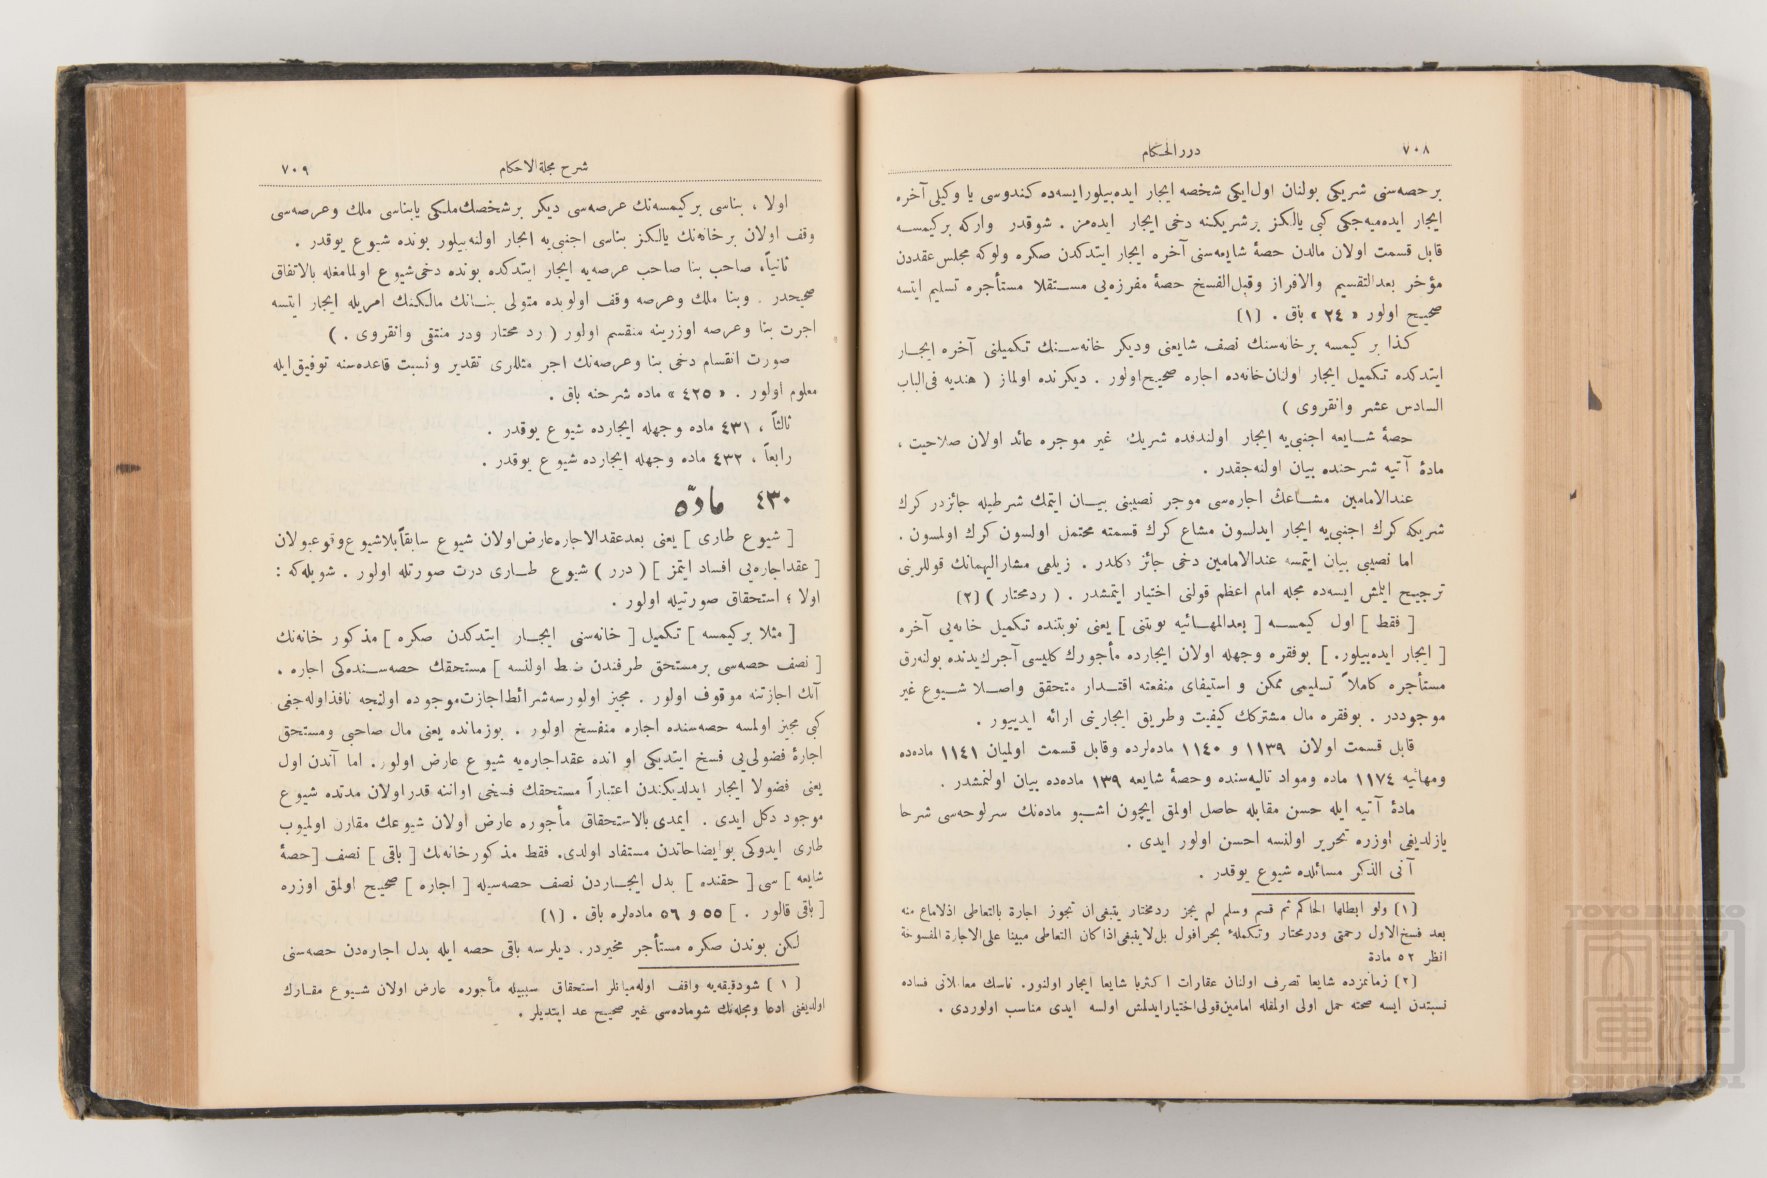 ٧٠٨
دررالحكام
بر حصه‌سنی شریكی بولنان اول‌ایكی شخصه ایجار ایده‌بیلورایسه‌ده كندوسی یا وكیلی آخره
ایجار ایده‌میه‌جكی كبی یالكز بر شریكنه دخی ایجار ایده‌مز . شوقدر واركه بركیمسه
قابل قسمت اولان مالدن حصهٔ شایعه‌سنی آخره ایجار ایتدكدن صكره ولوكه مجلس عقددن
مؤخر بعدالتقسیم والافراز وقبل‌الفسخ حصهٔ مفرزه‌یی مستقلا مستأجره تسلیم ایتسه
صحیح اولور « ٢٤ » باق . (١)
كذا بر كیمسه برخانه‌سنك نصف شایعنی ودیكر خانه‌سنك تكمیلنی آخره ایجار
ایتدكده تكمیل ایجار اولنان‌خانه‌ده اجاره صحیح‌اولور . دیكرنده اولماز ( هندیه فی‌الباب
السادس عشر وانقروی )
حصهٔ شایعه اجنبی‌یه ایجار اولندقده شریك غیر موجره عائد اولان صلاحیت ،
مادهٔ آتیه شرحنده بیان اولنه‌جقدر .
عندالامامین مشاعك اجاره‌سی موجر نصیبنی بیان ایتمك شرطیله جائزدر كرك
شریكه كرك اجنبی‌یه ایجار ایدلسون مشاع كرك قسمته محتمل اولسون كرك اولمسون .
اما نصیبی بیان ایتمسه عندالامامین دخی جائز دكلدر . زیلعی مشارالیهمانك قوللرینی
ترجیح ایتمش ایسه‌ده مجله امام اعظم قولنی اختیار ایتمشدر . ( ردمحتار ) (٢)
[ فقط ] اول كیمسه [ بعدالمهائیه نوبتنی ] یعنی نوبتنده تكمیل خانه‌یی آخره
[ ایجار ایده‌بیلور. ] بوفقره وجهله اولان ایجارده مأجورك كلیسی آجرك‌یدنده بولنه‌رق
مستأجره كاملاً تسلیمی ممكن و استیفای منفعته اقتدار متحقق واصلا شیوع غیر
موجوددر . بوفقره مال مشتركك كیفیت وطریق ایجارینی ارائه ایدییور .
قابل قسمت اولان ١١٣٩ و ١١٤٠ ماده‌لرده وقابل قسمت اولمیان ١١٤١ ماده‌ده
ومهائیه ١١٧٤ ماده ومواد تالیه‌سنده وحصهٔ شایعه ١٣٩ ماده‌ده بیان اولنمشدر .
مادهٔ آتیه ایله حسن مقابله حاصل اولمق ایچون اشبو ماده‌نك سرلوحه‌سی شرحا
یازلدیغی اوزره تحریر اولنسه احسن اولور ایدی .
آتی الذكر مسائلده شیوع یوقدر .
(١) ولو ابطلها الحاكم ثم قسم وسلم لم یجز ردمحتار ینبغی‌ان تجوز اجارة بالتعاطی اذلامانع منه
بعد فسخ‌الاول رحمتی ودرمحتار وتكمله‌ٔ بحرافول بل‌لاینبغی‌اذاكان التعاطی مبینا علی‌الاجارة المفسوخة
انظر ٥٢ مادة
(٢) زمانمزده شایعا تصرف اولنان عقارات اكثریا شایعا ایجار اولنور. ناسك معاملاتی فساده
نسبتدن ایسه صحته حمل اولی اولمغله امامین‌قولی‌اختیارایدلمش اولسه ایدی مناسب اولوردی .
شرح مجلةالاحكام
٧٠٩
اولا ، بناسی بركیمسه‌نك عرصه‌سی دیكر برشخصك‌ملكی یابناسی ملك وعرصه‌سی
وقف اولان برخانه‌نك یالكز بناسی اجنبی‌یه ایجار اولنه‌بیلور بونده شیوع یوقدر .
ثانیاً، صاحب بنا صاحب عرصه‌یه ایجار ایتدكده بونده دخی‌شیوع اولمامغله بالاتفاق
صحیحدر . وبنا ملك وعرصه وقف اولوبده متولی بنانك مالكنك امریله ایجار ایتسه
اجرت بنا وعرصه اوزرینه منقسم اولور ( رد محتار ودر منتقی وانقروی . )
صورت انقسام دخی بنا وعرصه‌نك اجر مثللری تقدیر ونسبت قاعده‌سنه توفیق‌ایله
معلوم اولور . « ٤٢٥ » ماده شرحنه باق .
ثالثاً ، ٤٣١ ماده وجهله ایجارده شیوع یوقدر .
رابعاً ، ٤٣٢ ماده وجهله ایجارده شیوع یوقدر .
٤٣٠ مادّه
[ شیوع طاری ] یعنی بعدعقدالاجاره‌عارض‌اولان شیوع سابقاًبلاشیوع‌وقوعبولان
[ عقداجاره‌یی افساد ایتمز ] ( درر ) شیوع طاری درت صورتله اولور . شویله‌كه :
اولا ؛ استحقاق صورتیله اولور .
[ مثلا بركیمسه ] تكمیل [ خانه‌سنی ایجار ایتدكدن صكره ] مذكور خانه‌نك
[ نصف حصه‌سی برمستحق طرفندن ضبط اولنسه ] مستحقك حصه‌سنده‌كی اجاره .
آنك اجازتنه موقوف اولور . مجیز اولورسه‌شرائط‌اجازت‌موجوده اولنجه نافذاوله‌جغی
كبی مجیز اولمسه حصه‌سنده اجاره منفسخ اولور . بوزمانده یعنی مال صاحبی ومستحق
اجارهٔ فضولی‌یی فسخ ایتدیكی او انده عقداجاره‌یه شیوع عارض اولور. اما آندن اول
یعنی فضولا ایجار ایدلدیكندن اعتباراً مستحقك فسخی اواننه قدراولان مدتده شیوع
موجود دكل ایدی . ایمدی بالاستحقاق مأجوره عارض اولان شیوعك مقارن اولمیوب
طاری ایدوكی بوایضاحاتدن مستفاد اولدی. فقط مذكورخانه‌نك [ باقی ] نصف [حصهٔ
شایعه ] سی [ حقنده ] بدل ایجاردن نصف حصه‌سیله [ اجاره ] صحیح اولمق اوزره
[ باقی قالور . ] ٥٥ و ٥٦ ماده‌لره باق . (١)
لكن بوندن صكره مستأجر مخیردر. دیلرسه باقی حصه ایله بدل اجاره‌دن حصه‌سنی
( ١ ) شودقیقه‌یه واقف اوله‌میانلر استحقاق سببیله مأجوره عارض اولان شیوع مقارن
اولدیغنی ادعا ومجله‌نك شوماده‌سی غیر صحیح عد ایتدیلر .
TOYO BUNKO